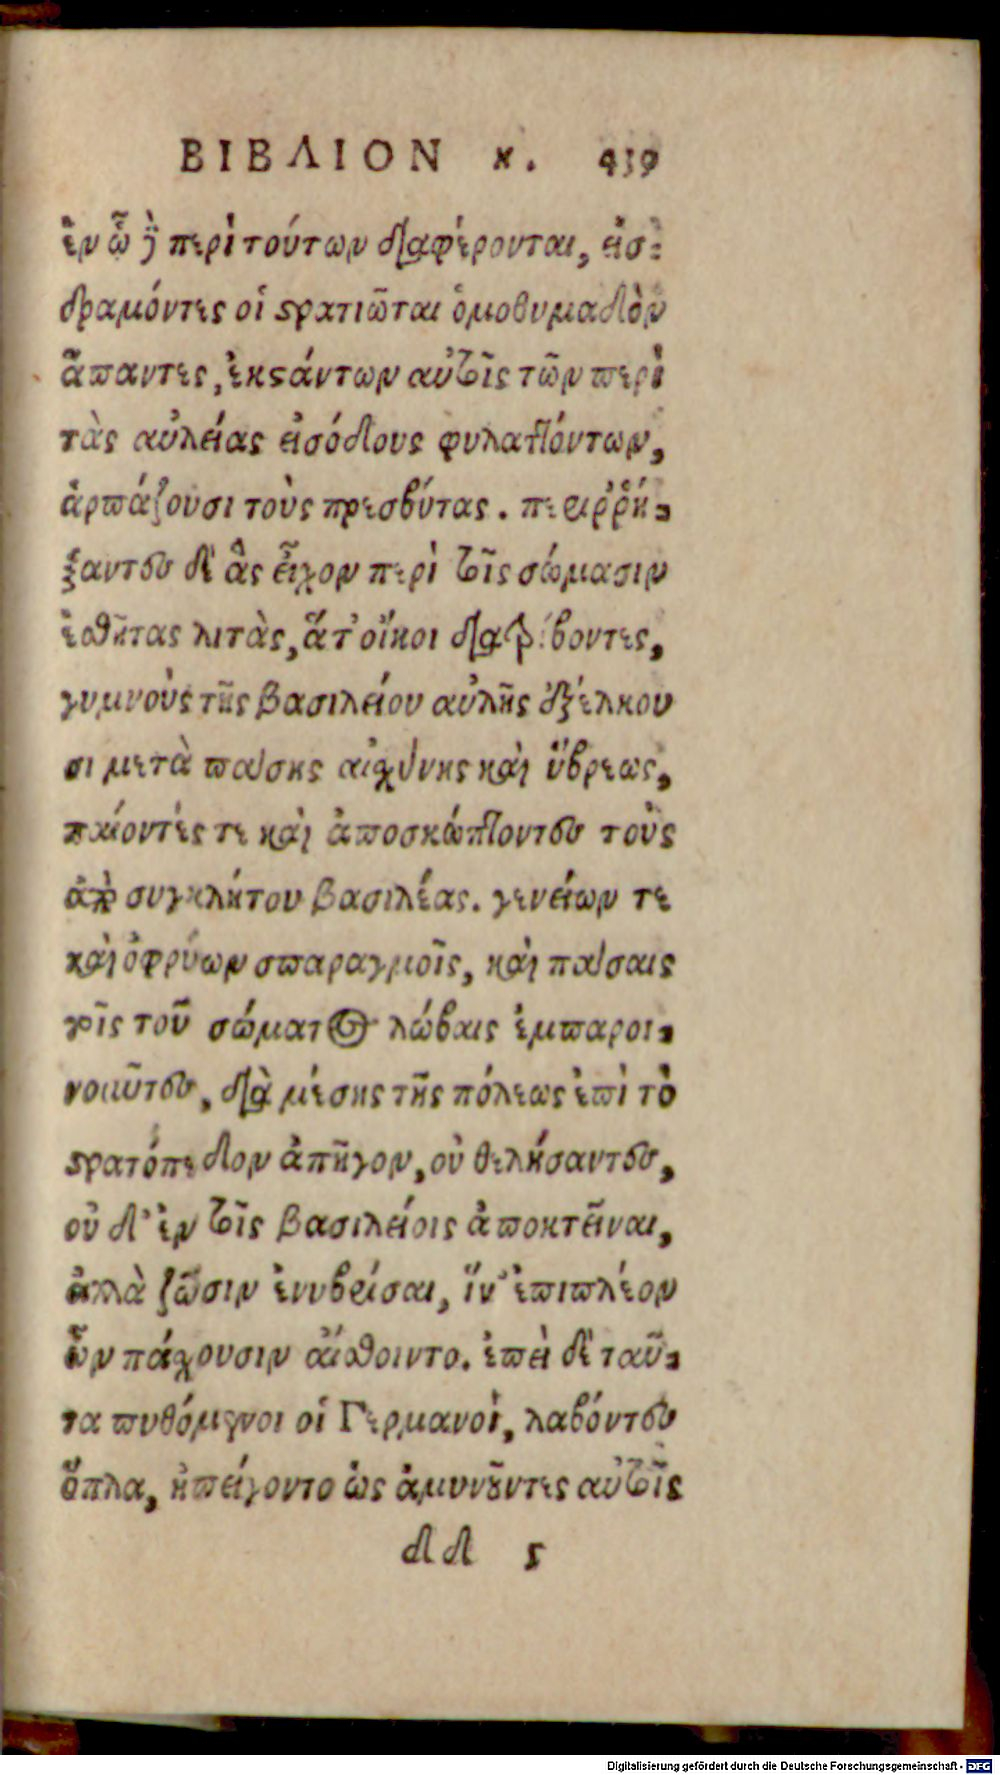 ΒΙΒΛΙΟΝ κ. 439
ἐν ᾧ ἢ περὶ τούτων διαφέρονται, εἰσ-
δραμόντες οἱ στρατιῶται ὁμοθυμαδὸν
ἅπαντες, ἐκστάντων αὐτοῖς τῶν περὶ
τὰς αὐλείας εἰσόδους φυλαττόντων,
ἁρπάζουσι τοὺς πρεσβύτας. περιρρή-
ξαντες δὲ ἃς εἶχον περὶ τοῖς σώμασιν
ἐσθῆτας λιτὰς, ἅτ' οἴκοι διατρίβοντες,
γυμνοὺς τῆς βασιλείου αὐλῆς ἐξέλκου
σι μετὰ πάσης αἰσχύνης καὶ ὕβρεως,
παίοντές τε καὶ ἀποσκώπτοντες τοὺς
ἀπὸ συγκλήτου βασιλέας. γενείων τε
καὶ ὀφρύων σπαραγμοῖς, καὶ πάσαις
ταῖς τοῦ σώματος λώβαις ἐμπαροι-
νοῦντες, διὰ μέσης τῆς πόλεως ἐπὶ τὸ
στρατόπεδον ἀπῆγον, οὐ θελήσαντες,
οὐδ' ἐν τοῖς βασιλείοις ἀποκτεῖναι,
ἀλλὰ ζῶσιν ἐνυβρίσαι, ἵν' ἐπιπλέον
ὧν πάσχουσιν αἴσθοιντο. ἐπεὶ δὲ ταῦ-
τα πυθόμενοι οἱ Γερμανοὶ, λαβόντες
ὅπλα, ἠπείγοντο ὡς ἀμυνοῦντες αὐτοῖς
δδ 5
Digitalisierung gefördert durch die Deutsche Forschungsgemeinschaft - DFG